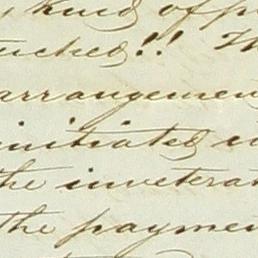 kind of p
tuches!! W
arrangemen
initiated i
the inveterat
the paymen